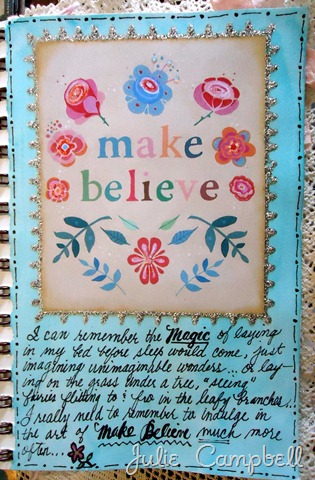 make
believe
I can remember the Magic of laying
in my bed before sleep would come, just
imagining unimaginable wonders... Or lay-
ing on the grass under a tree, "seeing"
fairies flitting to & fro in the leafy branches...
I really need to remember to indulge in
the art of "Make Believe much more
often...
Julie Campbell